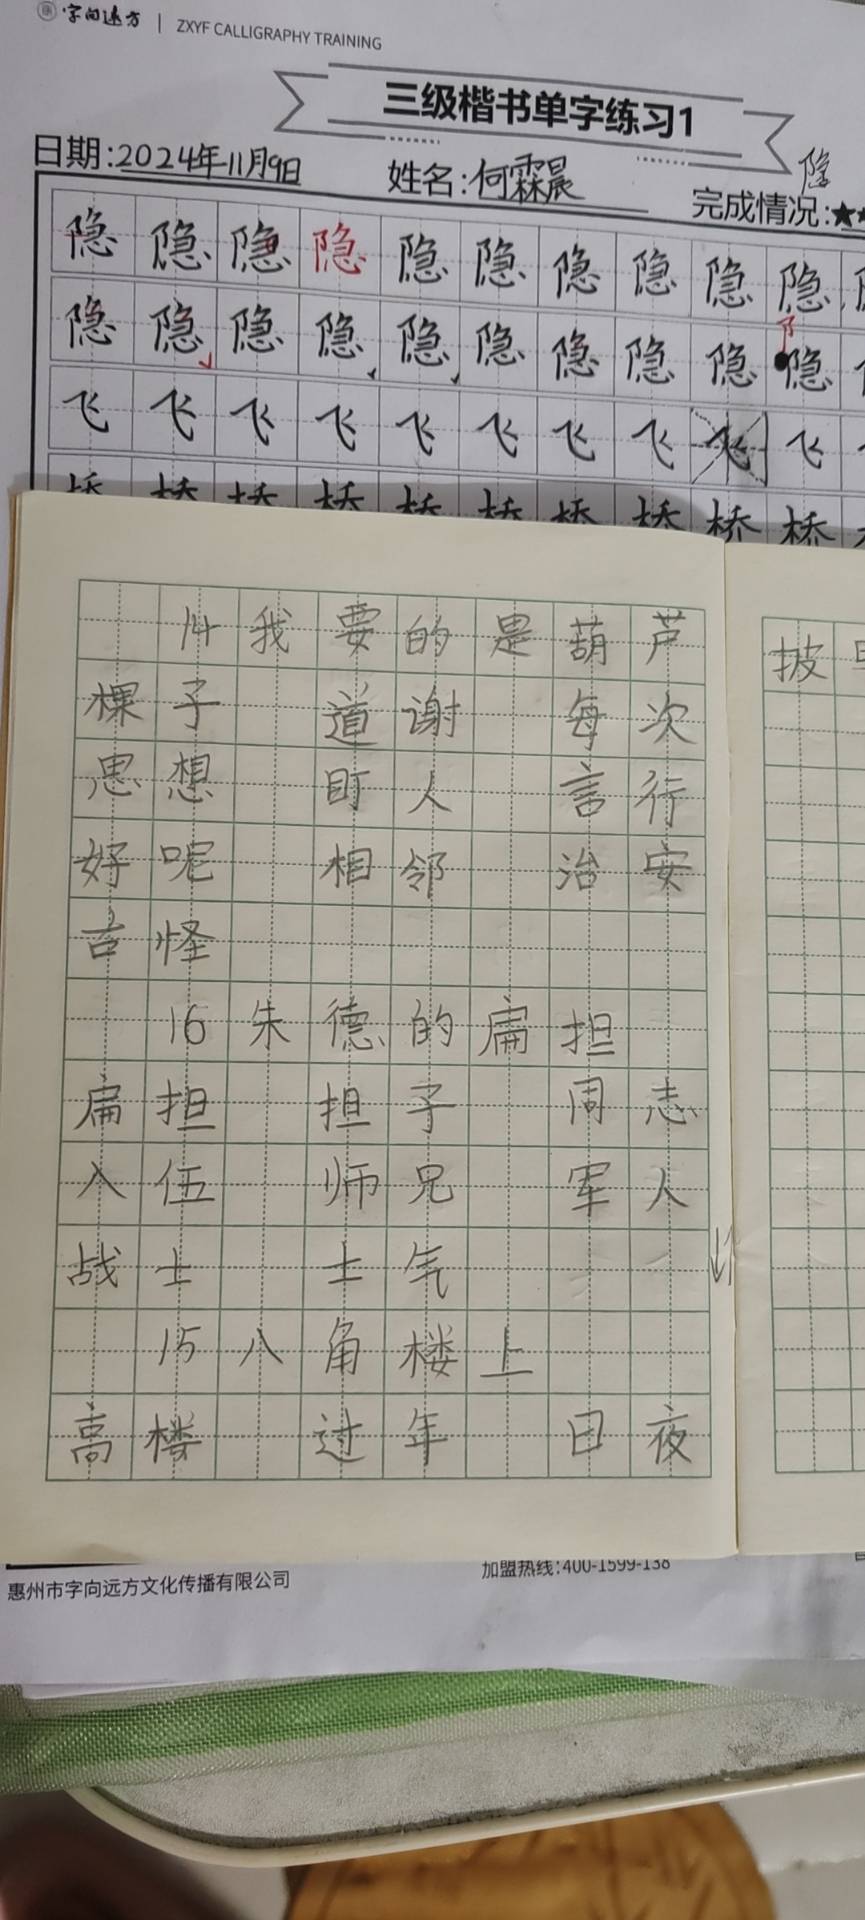 字向远方 | ZXYF CALLIGRAPHY TRAINING
三级楷书单字练习1
日期:2024年11月9日 姓名:何霖晨 完成情况:★★
隐
隐隐隐隐隐隐隐隐隐隐
隐隐隐隐隐隐隐隐隐隐
飞飞飞飞飞飞飞飞飞飞
桥桥桥桥桥桥桥桥桥桥
14我要的是葫芦
棵子 道谢 每次
思想 盯人 言行
好呢 相邻 治安
古怪
16朱德的扁担
扁担 担子 同志
入伍 师兄 军人
战士 士气
15八角楼上
高楼 过年 日夜
披
惠州市字向远方文化传播有限公司 加盟热线:400-1599-138